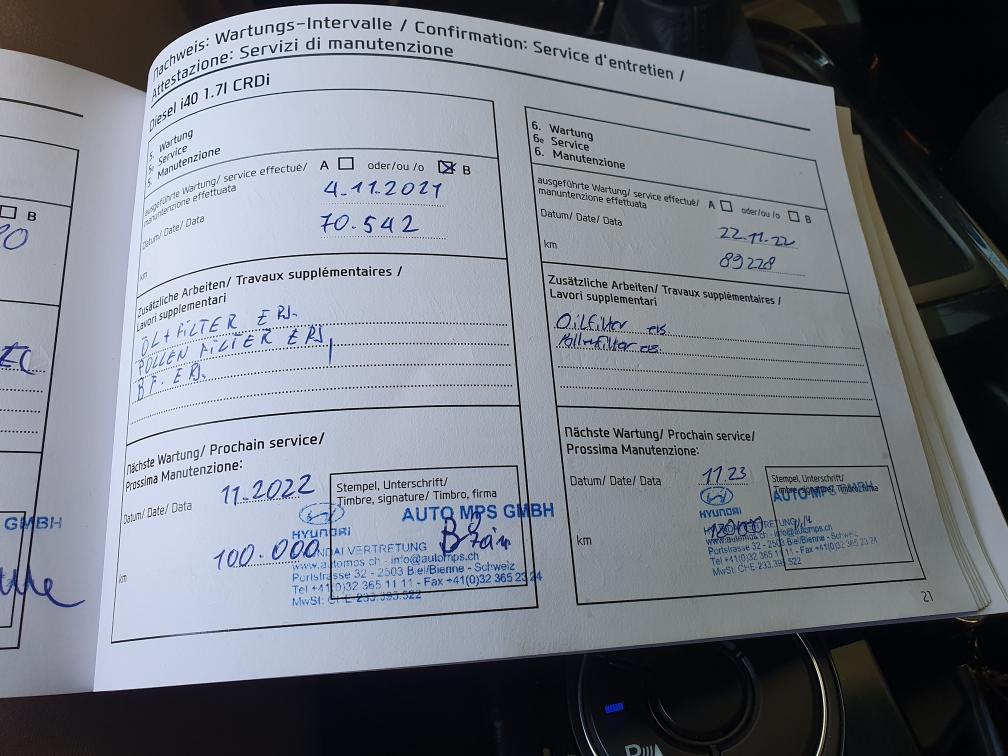 Nachweis: Wartungs-Intervalle / Confirmation: Service d'entretien /
Attestazione: Servizi di manutenzione
Diesel i40 1.7l CRDi
B
20
GMBH
5. Wartung
5e Service
5. Manutenzione
ausgeführte Wartung/ service effectué/ A oder/ou /o B
manuntenzione effettuata
Datum/ Date/ Data 4.11.2021
km 70.542
Zusätzliche Arbeiten/ Travaux supplémentaires /
Lavori supplementari
ÖL + FILTER ERS.
POLLEN FILTER ERS,
BF. ERS.
Nächste Wartung/ Prochain service/
Prossima Manutenzione:
Datum/ Date/ Data 11.2022
km 100.000
Stempel, Unterschrift/
Timbre, signature/ Timbro, firma
AUTO MPS GMBH
HYUNDAI
HYUNDAI VERTRETUNG
www.automps.ch - info@automps.ch
Portstrasse 32 - 2503 Biel/Bienne - Schweiz
Tel +41(0)32 365 11 11 - Fax +41(0)32 365 23 24
MwSt. CHE-233.393.522
6. Wartung
6e Service
6. Manutenzione
ausgeführte Wartung/ service effectué/ A oder/ou /o B
manuntenzione effettuata
Datum/ Date/ Data 22.11.22
km 89228
Zusätzliche Arbeiten/ Travaux supplémentaires /
Lavori supplementari
Oilfilter ers.
Pollenfilter ers.
Nächste Wartung/ Prochain service/
Prossima Manutenzione:
Datum/ Date/ Data 11.23
km
Stempel, Unterschrift/
Timbre, signature/ Timbro, firma
AUTO MPS GMBH
HYUNDAI
www.automps.ch - info@automps.ch
Portstrasse 32 - 2503 Biel/Bienne - Schweiz
Tel +41(0)32 365 11 11 - Fax +41(0)32 365 23 24
MwSt. CHE-233.393.522
21
P